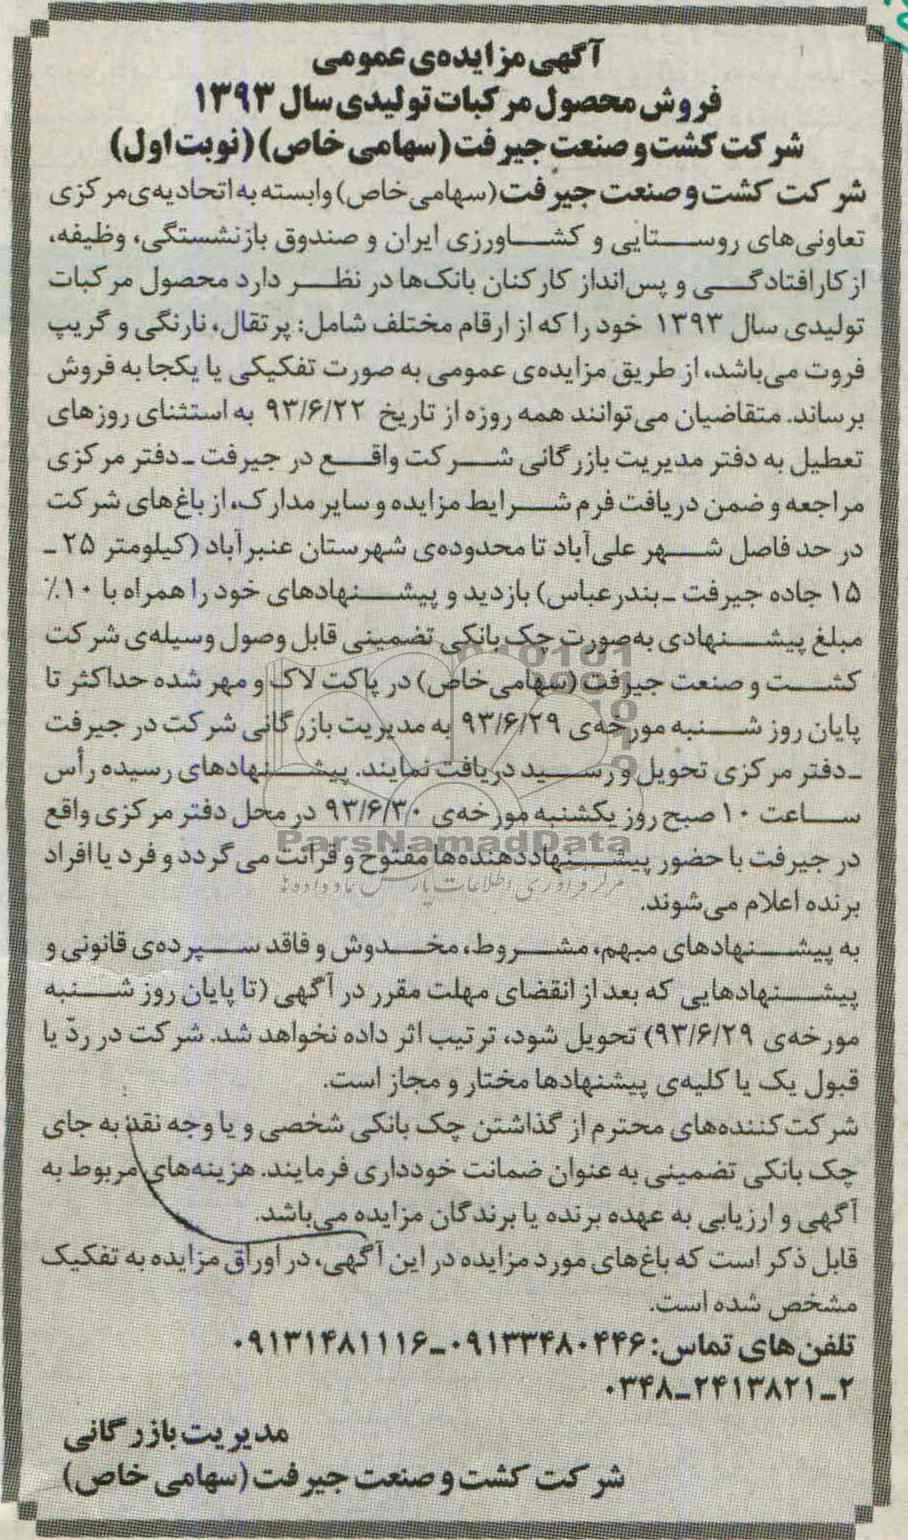 آگهی مزایده‌ی عمومی
فروش محصول مرکبات تولیدی سال ۱۳۹۳
شرکت کشت و صنعت جیرفت (سهامی خاص) (نوبت اول)
شرکت کشت و صنعت جیرفت (سهامی خاص) وابسته به اتحادیه‌ی مرکزی
تعاونی‌های روستایی و کشاورزی ایران و صندوق بازنشستگی، وظیفه،
از کارافتادگی و پس‌انداز کارکنان بانک‌ها در نظر دارد محصول مرکبات
تولیدی سال ۱۳۹۳ خود را که از ارقام مختلف شامل: پرتقال، نارنگی و گریپ
فروت می‌باشد، از طریق مزایده‌ی عمومی به صورت تفکیکی یا یکجا به فروش
برساند. متقاضیان می‌توانند همه روزه از تاریخ ۹۳/۶/۲۲ به استثنای روزهای
تعطیل به دفتر مدیریت بازرگانی شرکت واقع در جیرفت ـ دفتر مرکزی
مراجعه و ضمن دریافت فرم شرایط مزایده و سایر مدارک، از باغ‌های شرکت
در حد فاصل شهر علی‌آباد تا محدوده‌ی شهرستان عنبرآباد (کیلومتر ۲۵ ـ
۱۵ جاده جیرفت ـ بندرعباس) بازدید و پیشنهادهای خود را همراه با ۱۰٪
مبلغ پیشنهادی به‌صورت چک بانکی تضمینی قابل وصول وسیله‌ی شرکت
کشت و صنعت جیرفت (سهامی خاص) در پاکت لاک و مهر شده حداکثر تا
پایان روز شنبه مورخه‌ی ۹۳/۶/۲۹ به مدیریت بازرگانی شرکت در جیرفت
ـ دفتر مرکزی تحویل و رسید دریافت نمایند. پیشنهادهای رسیده رأس
ساعت ۱۰ صبح روز یکشنبه مورخه‌ی ۹۳/۶/۳۰ در محل دفتر مرکزی واقع
در جیرفت با حضور پیشنهاددهنده‌ها مفتوح و قرائت می‌گردد و فرد یا افراد
برنده اعلام می‌شوند.
به پیشنهادهای مبهم، مشروط، مخدوش و فاقد سپرده‌ی قانونی و
پیشنهادهایی که بعد از انقضای مهلت مقرر در آگهی (تا پایان روز شنبه
مورخه‌ی ۹۳/۶/۲۹) تحویل شود، ترتیب اثر داده نخواهد شد. شرکت در ردّ یا
قبول یک یا کلیه‌ی پیشنهادها مختار و مجاز است.
شرکت‌کننده‌های محترم از گذاشتن چک بانکی شخصی و یا وجه نقد به جای
چک بانکی تضمینی به عنوان ضمانت خودداری فرمایند. هزینه‌های مربوط به
آگهی و ارزیابی به عهده برنده یا برندگان مزایده می‌باشد.
قابل ذکر است که باغ‌های مورد مزایده در این آگهی، در اوراق مزایده به تفکیک
مشخص شده است.
تلفن‌های تماس: ۰۹۱۳۳۴۸۰۴۴۶ـ۰۹۱۳۱۴۸۱۱۱۶
۰۳۴۸ـ۲۴۱۳۸۲۱ـ۲
مدیریت بازرگانی
شرکت کشت و صنعت جیرفت (سهامی خاص)
ParsNamadData
مرکز فرآوری اطلاعات پارس نماد داده‌ها